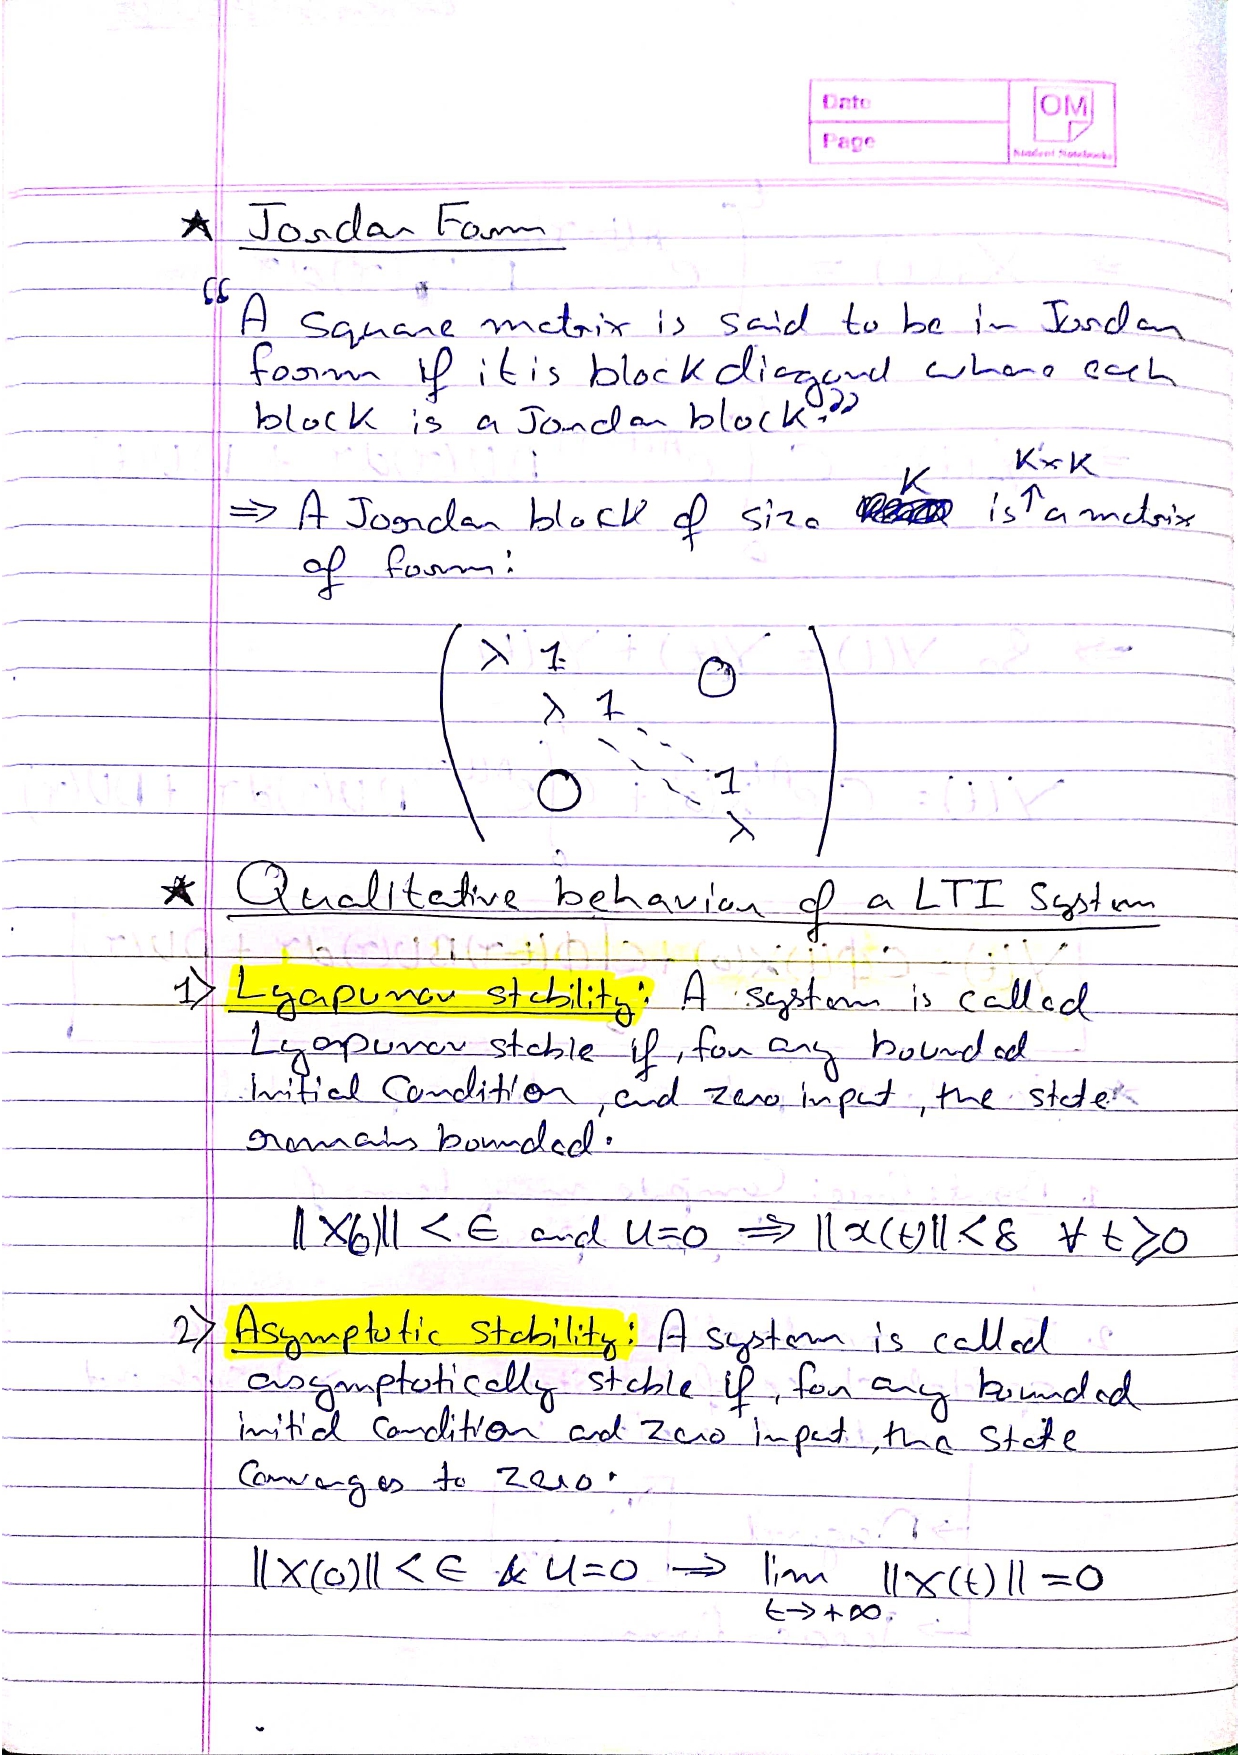 Date
Page
OM
Student Notebooks
★ Jordan Form
“A square matrix is said to be in Jordan
form if it is block diagonal where each
block is a Jordan block.”
K K×K
⇒ A Jordan block of size is ↑ a matrix
of form:
λ 1 0
λ 1
0 1
λ
★ Qualitative behavior of a LTI System
1) Lyapunov stability: A system is called
Lyapunov stable if, for any bounded
initial condition, and zero input, the state
remains bounded.
||x(0)|| < ϵ and u=0 ⇒ ||x(t)|| < δ ∀ t ≥ 0
2) Asymptotic stability: A system is called
asymptotically stable if, for any bounded
initial condition and zero input, the state
converges to zero.
||x(0)|| < ϵ & u=0 ⇒ lim ||x(t)|| = 0
t→+∞